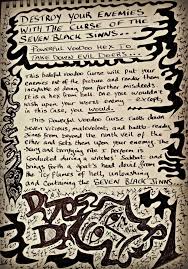 DESTROY YOUR ENEMIES
WITH THE CURSE OF THE
SEVEN BLACK JINNS...
POWERFUL VOODOO HEX TO
TAKE DOWN EVIL DOERS...
This baleful Voodoo Curse will put your
enemies out of the picture and render them
incapable of doing you further misdeeds.
It is a hex from hell. One you wouldn't
wish upon your worst enemy - except,
in this case, you would.
This Powerful Voodoo Curse calls down
Seven vicious, malevolent, and battle ready
Jinns from beyond the Ninth veil of the
Other and sets them upon your enemy. The
Scary and terrifying rite is performed
Conducted during a witches' Sabbat and
brings forth what's best devil, from
the icy flames of hell, unleashing
and Containing the SEVEN BLACK JINNS